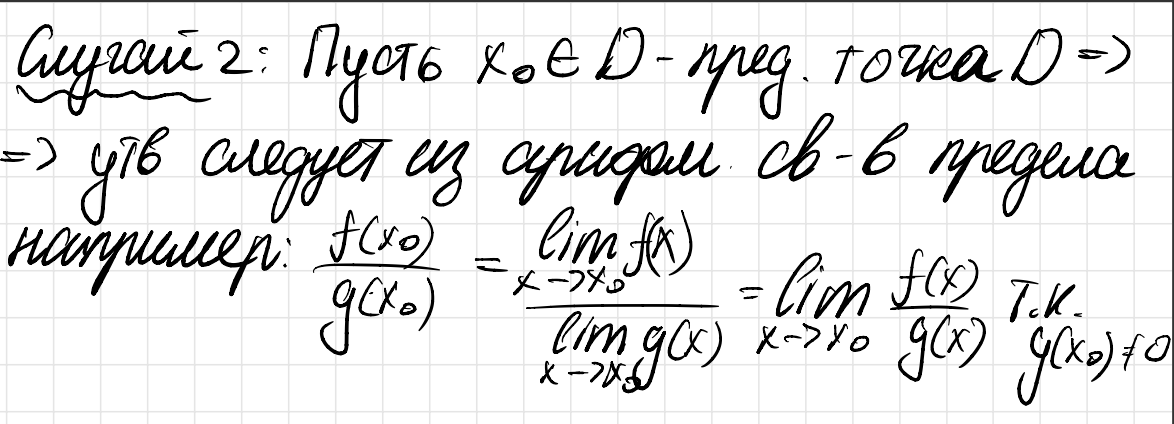 Случай 2: Пусть x₀ ∈ D - пред. точка D =>
=> утв следует из арифм. св-в предела
например: f(x₀)/g(x₀) = lim_{x->x₀} f(x) / lim_{x->x₀} g(x) = lim_{x->x₀} f(x)/g(x) т.к. g(x₀) ≠ 0